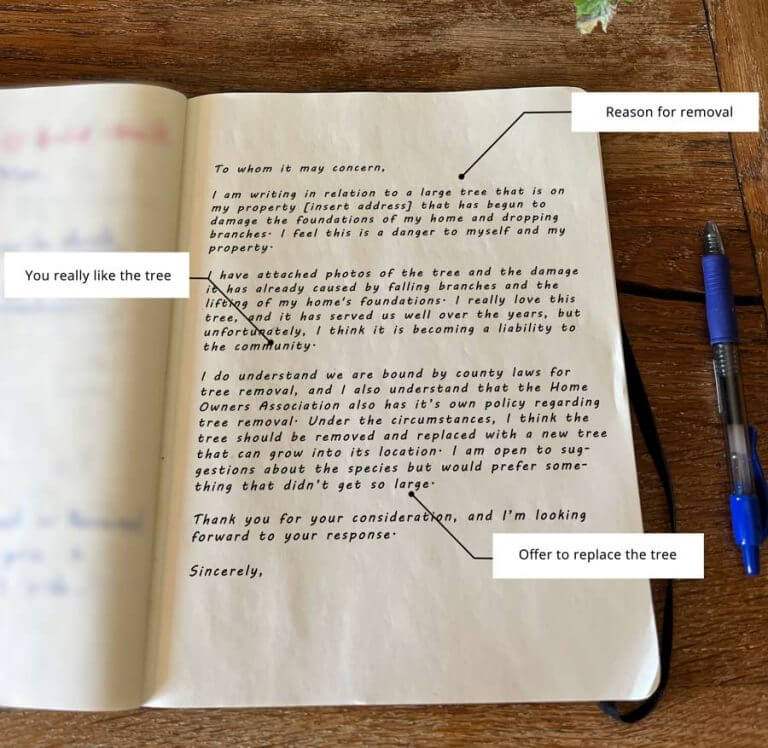 Reason for removal
To whom it may concern,
I am writing in relation to a large tree that is on
my property [insert address] that has begun to
damage the foundations of my home and dropping
branches. I feel this is a danger to myself and my
property.
You really like the tree
I have attached photos of the tree and the damage
it has already caused by falling branches and the
lifting of my home's foundations. I really love this
tree, and it has served us well over the years, but
unfortunately, I think it is becoming a liability to
the community.
I do understand we are bound by county laws for
tree removal, and I also understand that the Home
Owners Association also has it's own policy regarding
tree removal. Under the circumstances, I think the
tree should be removed and replaced with a new tree
that can grow into its location. I am open to sug-
gestions about the species but would prefer some-
thing that didn't get so large.
Thank you for your consideration, and I'm looking
forward to your response.
Offer to replace the tree
Sincerely,